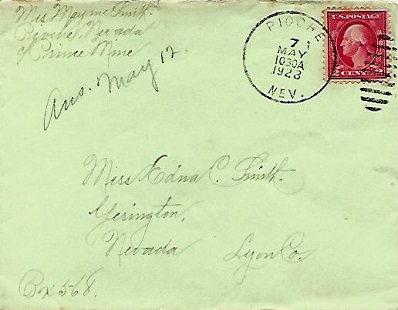 Mrs Mayme Smith.
Pioche, Nevada
c/o Prince Mine
Ans. May 12
PIOCHE
7
MAY
1030A
1923
NEV.
U.S. POSTAGE
2 CENTS 2
Miss Edna C. Smith.
Yerington,
Nevada Lyon Co.
Box 568.